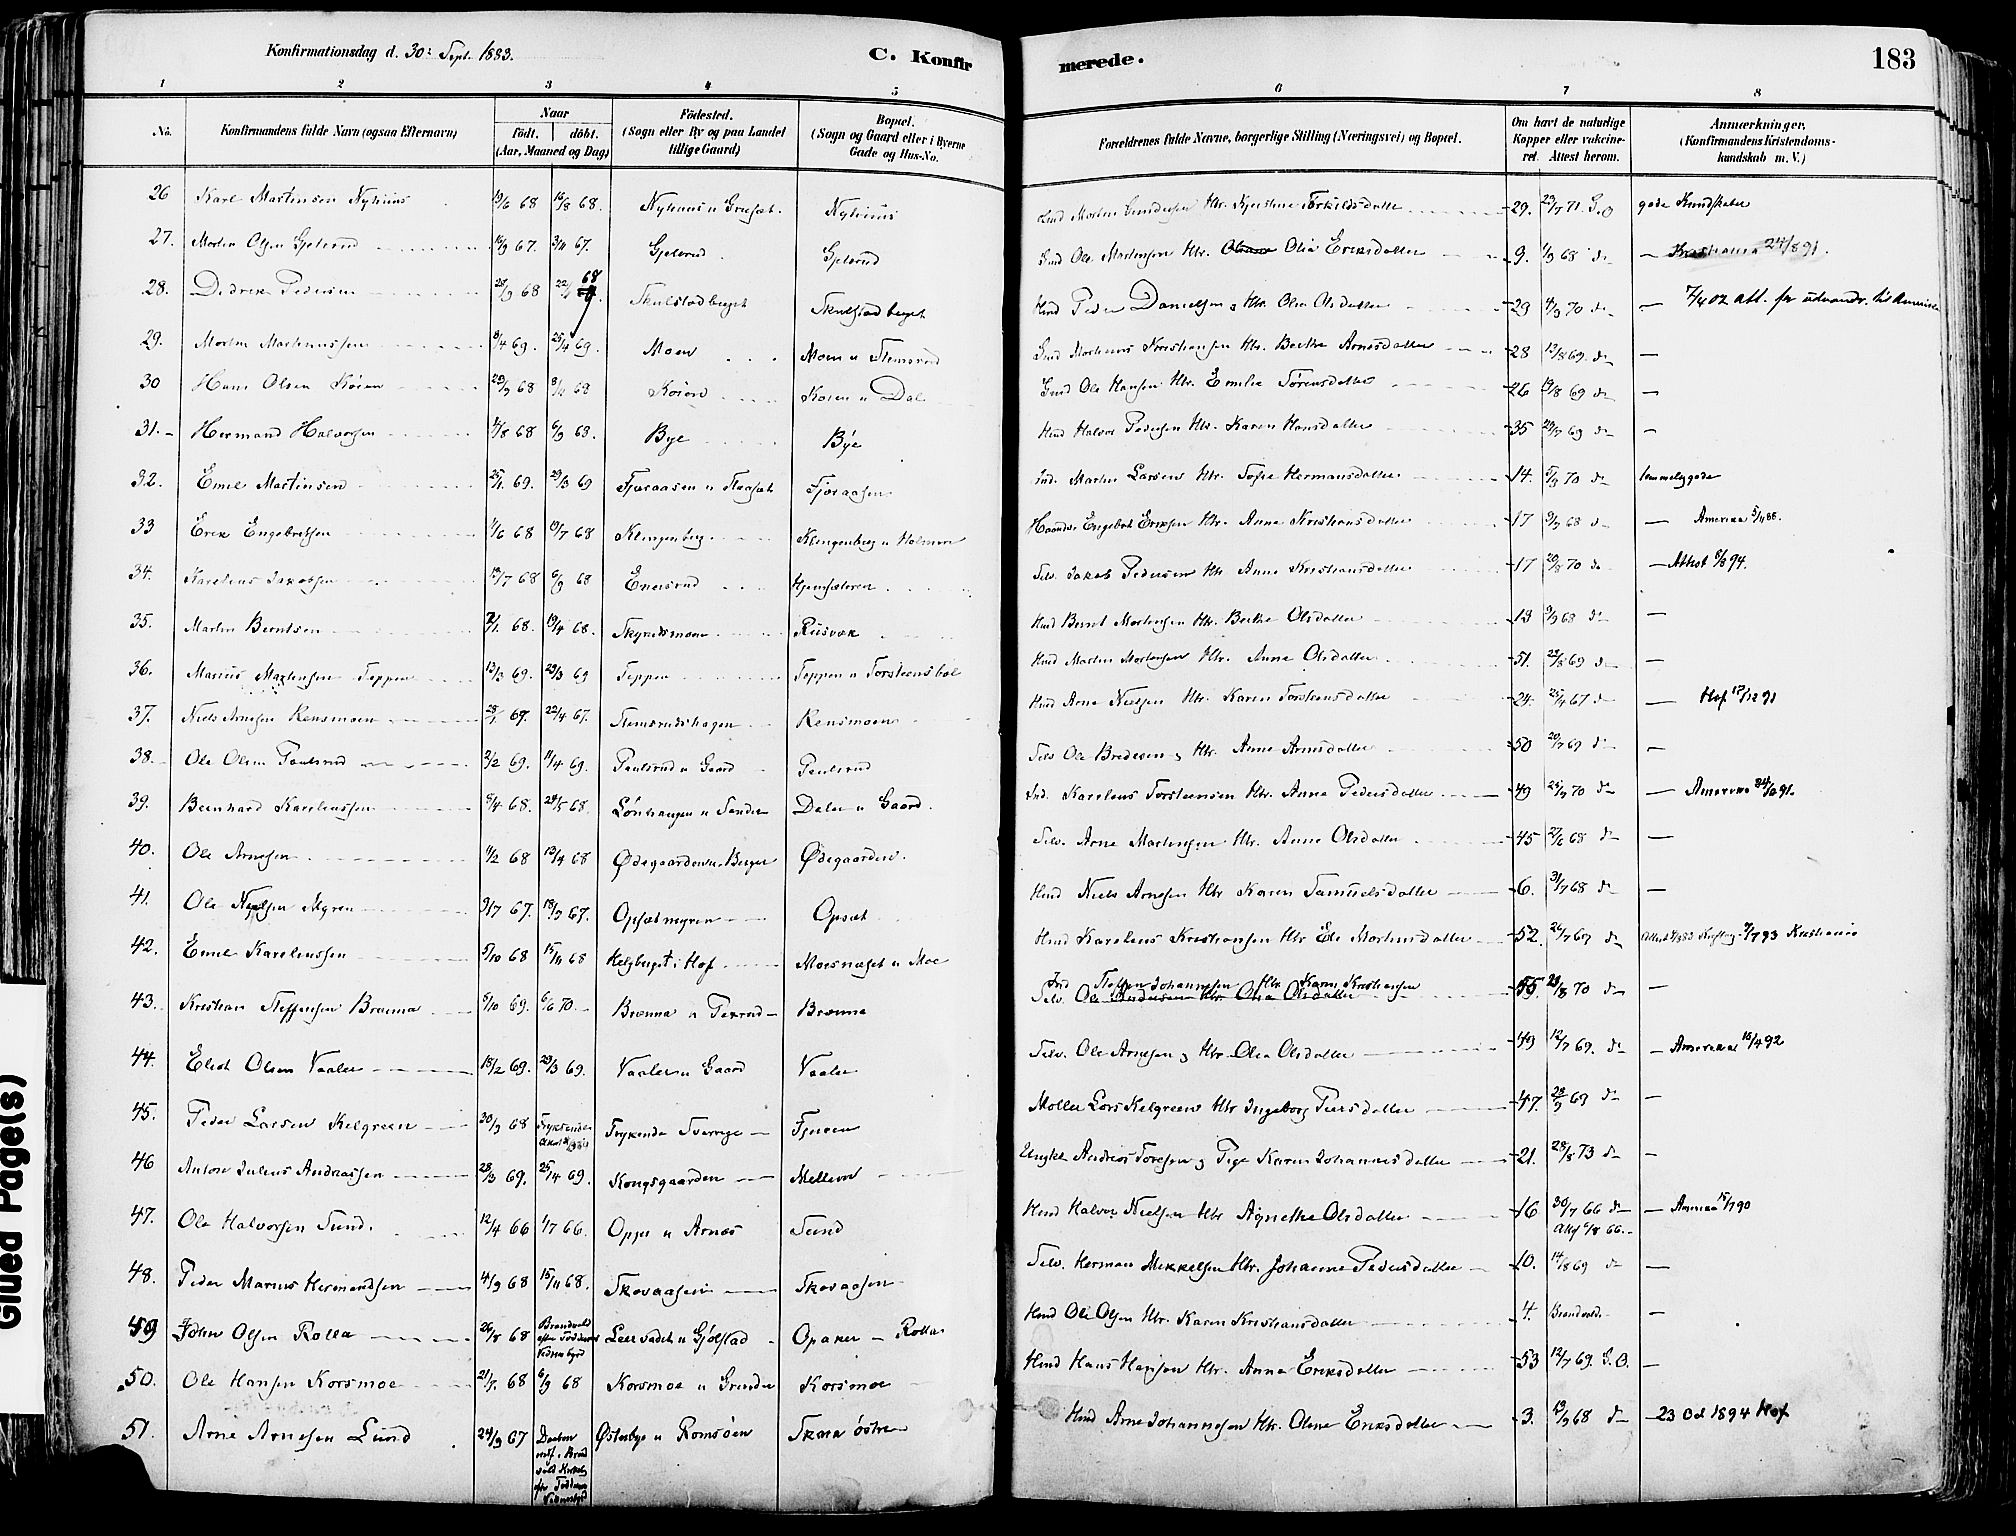 Konfirmationsdag d. 30: Sept. 1883.
C. Konfirmerede.
183
1 2 3 4 5 6 7 8
No.
Konfirmandens fulde Navn (ogsaa Efternavn)
Naar
födt. döbt.
(Aar, Maaned og Dag)
Födested.
(Sogn eller By og paa Landet
tillige Gaard)
Bopæl.
(Sogn og Gaard eller i Byerne
Gade og Hus-No.
Forældrenes fulde Navne, borgerlige Stilling (Næringsvei) og Bopæl.
Om havt de naturlige
Kopper eller vakcine-
ret. Attest herom.
Anmærkninger.
(Konfirmandens Kristendoms-
kundskab m. V.)
26 Karl Martinsen Nyhuus 19/6 68 16/8 68. Nyhuus u Gravset. Nyhuus Morten Gundersen Htr. Kjerstine Torkildsdatter 29. 29/7 71. gode Kundskaber
27. Morten Olsen Gjelsrud 67. 67. Gjelsrud Gjelsrud Ole Mortensen Htr. Olia Eriksdatter 9. 68 do — Kristiania 24/8 91.
28. Didrik Pedersen 68 22/ 68 Skulstadberget Skulstadberget Hmd Peder Danielsen og Htr. Olea Olsdatter 29 4/9 70 do — 7/4 02 att. for udvandr. til Amerika
29. Morten Martinussen 8/4 69. 25/4 69. Moen Moen u Stemsrud Martinus Kristiansen Htr. Berthe Arnesdatter 28 12/8 69. do —
30 Hans Olsen Koien 29/9 68 68 Koien Koien u Dal Ole Hansen Htr. Emilie Sørensdatter 26 19/8 69 do —
31. Hermand Halvorsen 4/8 68 6/9 68. Bye Bye Hmd Halvor Pedersen Htr. Karen Hansdatter 35 29/7 69 do —
32. Emil Martinsen 25/1 69. 29/3 69 Fjøraasen u Flasæt Fjøraasen Ind. Martin Larsen Htr. Sofie Hermansdatter 14. 5/9 70 do temmelig gode
33 Erik Engebretsen 1/6 68 19/7 68 Klingenberg Klingenberg u Holmen Haandv. Engebret Eriksen Htr. Anne Kristiansdatter 17 9/9 68 do — Amerika 5/1 88.
34. Karelius Jakobsen 12/7 68 6/9 68 Enersrud Hjemsæteren Selv. Jakob Pedersen Htr. Anne Kristiansdatter 17 29/8 70 do — Attest 6/8 94.
35. Martin Berntsen 2/1. 68. 19/4 68. Skyriksmoen Riisvæk Hmd Bernt Mortensen Htr. Berthe Olsdatter 13 9/9 68 do —
36. Marius Martinsen Teppen 12/3 69. 29/3 69 Teppen Teppen u Torstensbøl Hmd Martin Mortensen Htr. Anne Olsdatter 51. 22/8 69 do —
37. Niels Arnesen Rensmoen 28/1 67. 22/4 67. Stemsrudshagen Rensmoen Hmd Arne Nielsen Htr. Karen Torstensdatter 24. 25/4 67 do — Hof 17/12 91
38. Ole Olsen Paulsrud 2/2 69. 11/4 69. Paulsrud u Gaard Paulsrud Selv Ole Bredesen og Htr. Anne Arnesdatter 50 20/7 69 do —
39. Bernhard Kareliussen 5/4 68. 24/5 68. Lønhaugen u Sander Dalen u Gaard. Ind. Karelius Torstensen Htr. Anne Pedersdatter 49 26/9 70 do — Amerika 24/6 91.
40. Ole Arnesen 11/2 68 12/4 68 Ødegaarden u Berger Ødegaarden. Selv. Arne Martinsen Htr. Anne Olsdatter 45 27/6 68 do —
41. Ole Nielsen Myren 9/7 67. 18/9 67. Opsætmyren Opsæt Hmd Niels Arnesen Htr Karen Samuelsdatter 6. 31/7 68 do —
42. Emil Kareliussen 5/10 68 15/11 68 Helgberget i Hof Moesnæset u Moe Hmd Karelius Kristiansen Htr Ede Mortensdatter 52. 26/7 69 do Kristiania
43. Kristian Steffensen Brænna 5/10 69. 6/6 70. Brænna u Pexrud Brænna Ind Steffen Johannesen Htr Karen Kristiansen
Selv. Ole Andersen Htr Olia Olsdatter 55. 29/8 70 do —
44. Elest Olsen Vaaler 18/2 69. 29/3 69. Vaaler u Gaard Vaaler Selv. Ole Arnesen og Htr Olea Olsdatter 49 12/7 69. do — Amerika 15/4 92
45. Peder Larsen Kelgreen 30/9 68 Fryksende Frykende Sverrige Fjeren Møller Lars Kelgreen Htr Ingeborg Persdatter 47. 28/9 69 do —
46 Anton Julius Andreassen 28/3 69. 25/4 69. Kongsgaarden Mellem Ungkl Andreas Toresen og Pige Karen Johannesdatter 21. 28/8 73 do —
47. Ole Halvorsen Sund. 12/4 66 1/7 66. Opjør u Arnæs Sund Hmd Halvor Nielsen Htr Agnethe Olsdatter 16 30/7 66 do — Amerika 15/7 90
48. Peder Marius Hermandsen 4/9 68 15/11 68. Skovaasen Skovaasen Selv. Herman Mikkelsen Htr. Johanne Pedersdatter 10. 14/8 69 do —
49 Johan Olsen Rolla 26/8 68 Brandvold Leirvadet u Gjølstad Opaker — Rolla Hmd Ole Olsen Htr. Karen Kristiansdatter 4. Brandvold —
50. Ole Hansen Korsmoe 21/7. 68 6/9 68 Korsmoe u Grinder Korsmoe Hmd Hans Hansen Htr. Anne Eriksdatter 53 12/7 69. S.O. —
51. Arne Arnesen Lund 24/9 67 Østerbye u Romsøen Skara østre Hmd Arne Johannesen Htr. Oline Eriksdatter 3. 13/9 68 do — 23 Oct 1894 Hof
Glued Page(s)